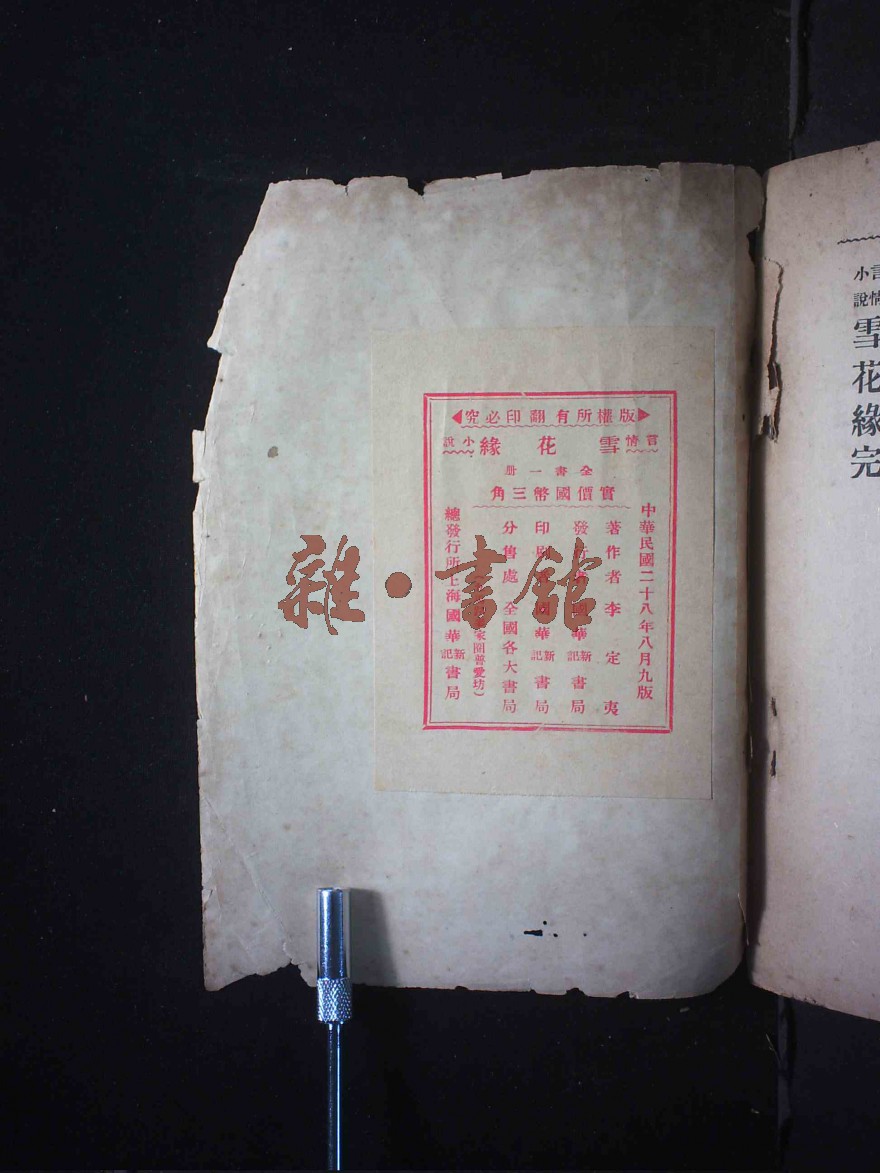 版權所有翻印必究
言情小說 雪花緣
全書一册
實價國幣三角
中華民國二十八年八月九版
著作者 李定夷
發行 國華新記書局
印刷 國華新記書局
分售處 全國各大書局
總發行所 上海國華新記書局
家圈普愛坊)
雜·書館
言情小說 雪花緣完